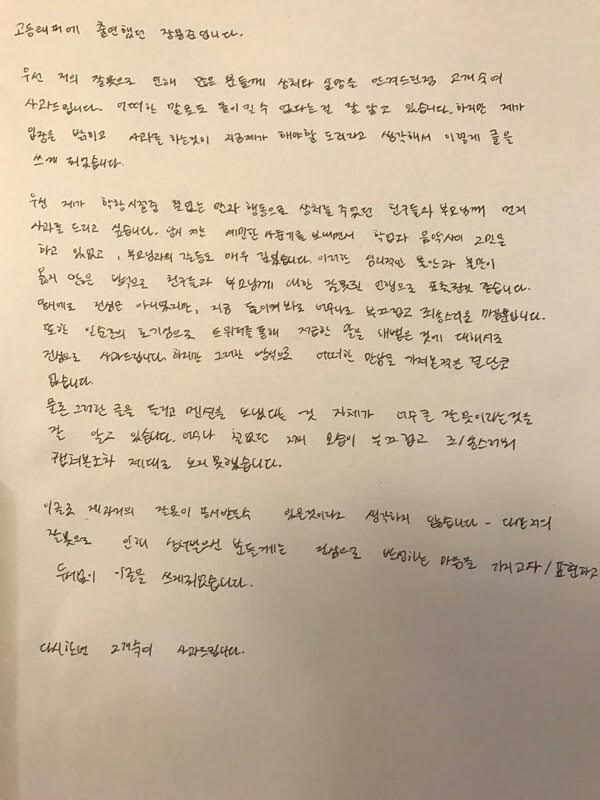 고등래퍼에 출연했던 장용준입니다.
우선 저의 잘못으로 인해 많은 분들께 상처와 실망을 안겨드린점 고개숙여
사과드립니다. 어떠한 말로도 돌이킬 수 없다는걸 잘 알고 있습니다. 하지만 제가
입장을 밝히고 사과를 하는것이 지금제가 해야할 도리라고 생각해서 이렇게 글을
쓰게 되었습니다.
우선 제가 학창시절중 철없는 말과 행동으로 상처를 주었던 친구들과 부모님께 먼저
사과를 드리고 싶습니다. 당시 저는 예민한 사춘기를 보내면서 학업과 음악사이 고민을
하고 있었고, 부모님과의 갈등도 매우 깊었습니다. 이러한 심리적인 불안과 불만이
옳지 않은 방식으로 친구들과 부모님께 대한 잘못된 언행으로 표출된것 같습니다.
당시에도 진심은 아니었지만, 지금 돌이켜봐도 너무나도 부끄럽고 죄송스러운 마음뿐입니다.
또한 일순간의 호기심으로 트위터를 통해 저급한 말을 내뱉은 것에 대해서도
진심으로 사과드립니다. 하지만 그러한 방식으로 어떠한 만남을 가져본적은 결단코
없습니다.
물론 그러한 글을 올리고 멘션을 보냈다는 것 자체가 너무 큰 잘못이라는것을
잘 알고 있습니다. 너무나 철없던 제 모습이 부끄럽고 죄송스러워
캡쳐본조차 제대로 보지 못했습니다.
이글로 제과거의 잘못이 용서받을수 있을것이라고 생각하지 않습니다 - 다만 저의
잘못으로 인해 상처받으신 분들께는 진심으로 반성하는 마음을 가지고자/표현하고
두서없이 이글을 쓰게되었습니다.
다시한번 고개숙여 사과드립니다.